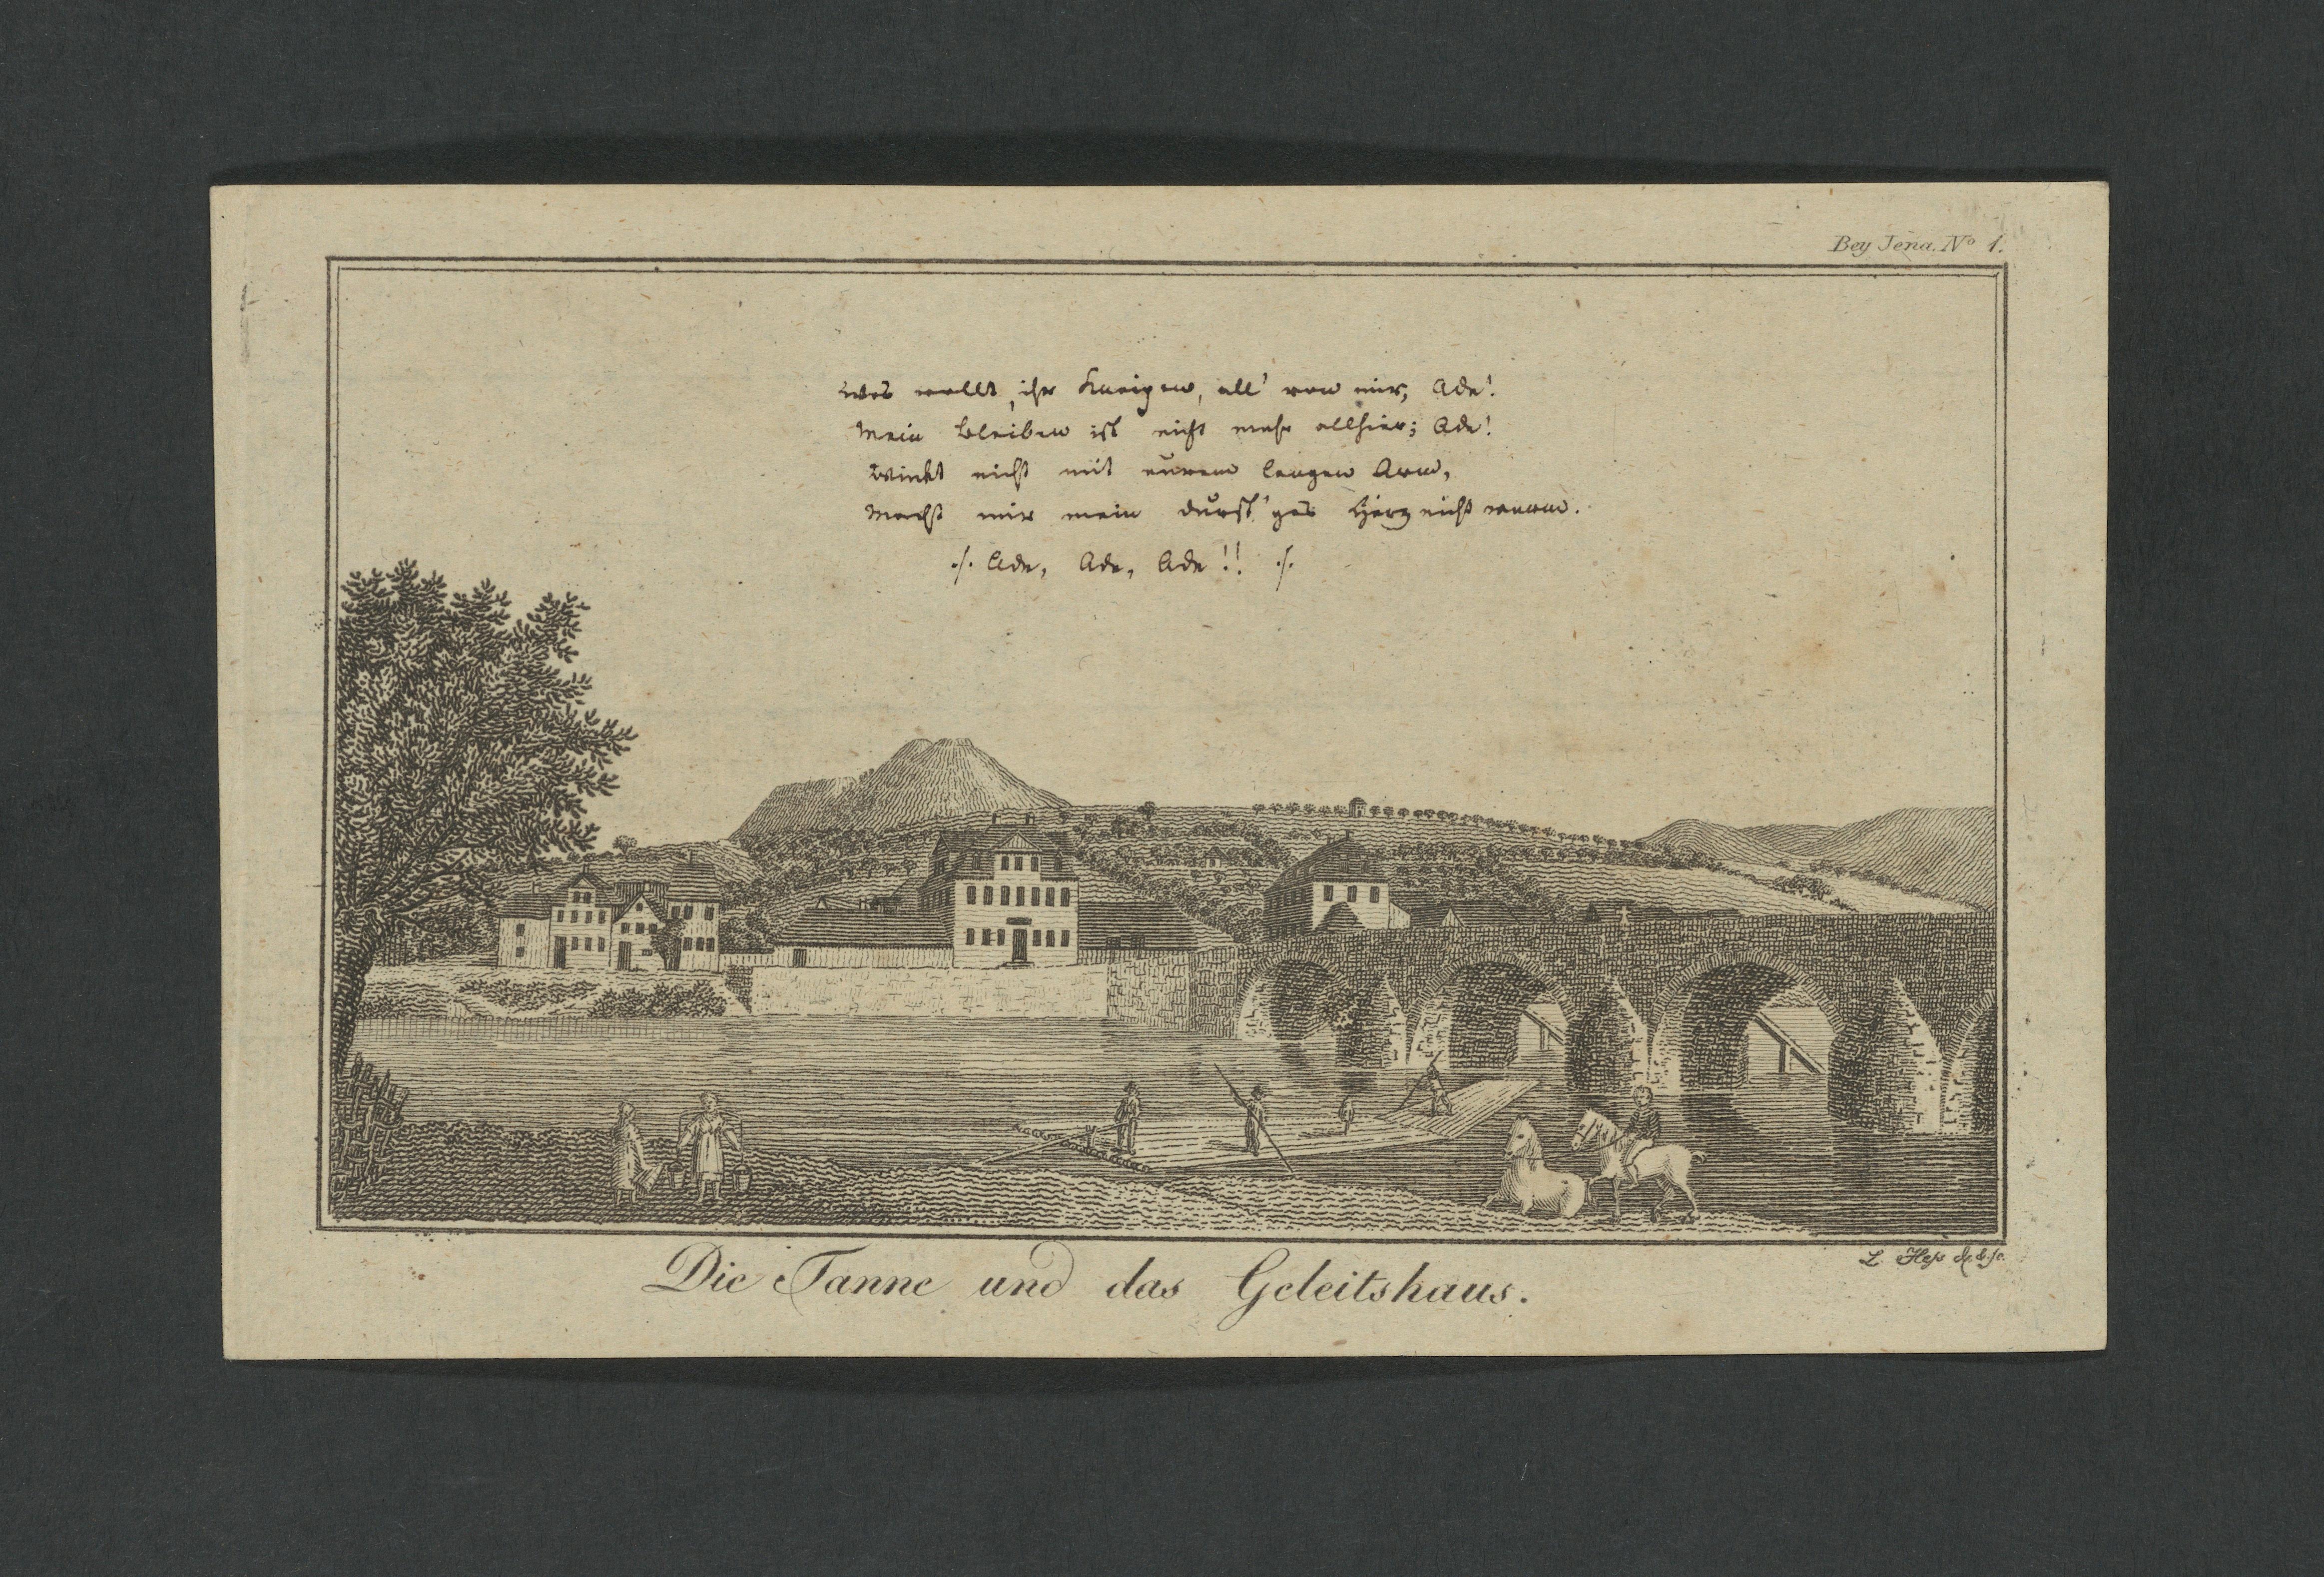 Bey Jena. No 1.
Was wollt, ihr Kneipen, all' von mir, Ade!
Mein Bleiben ist nicht mehr allhier; Ade!
Winkt nicht mit eurem langen Arm,
Macht mir mein durst'ges Herz nicht warm.
./. Ade, Ade, Ade!! ./.
L Heſs de. & sc.
Die Tanne und das Geleitshaus.